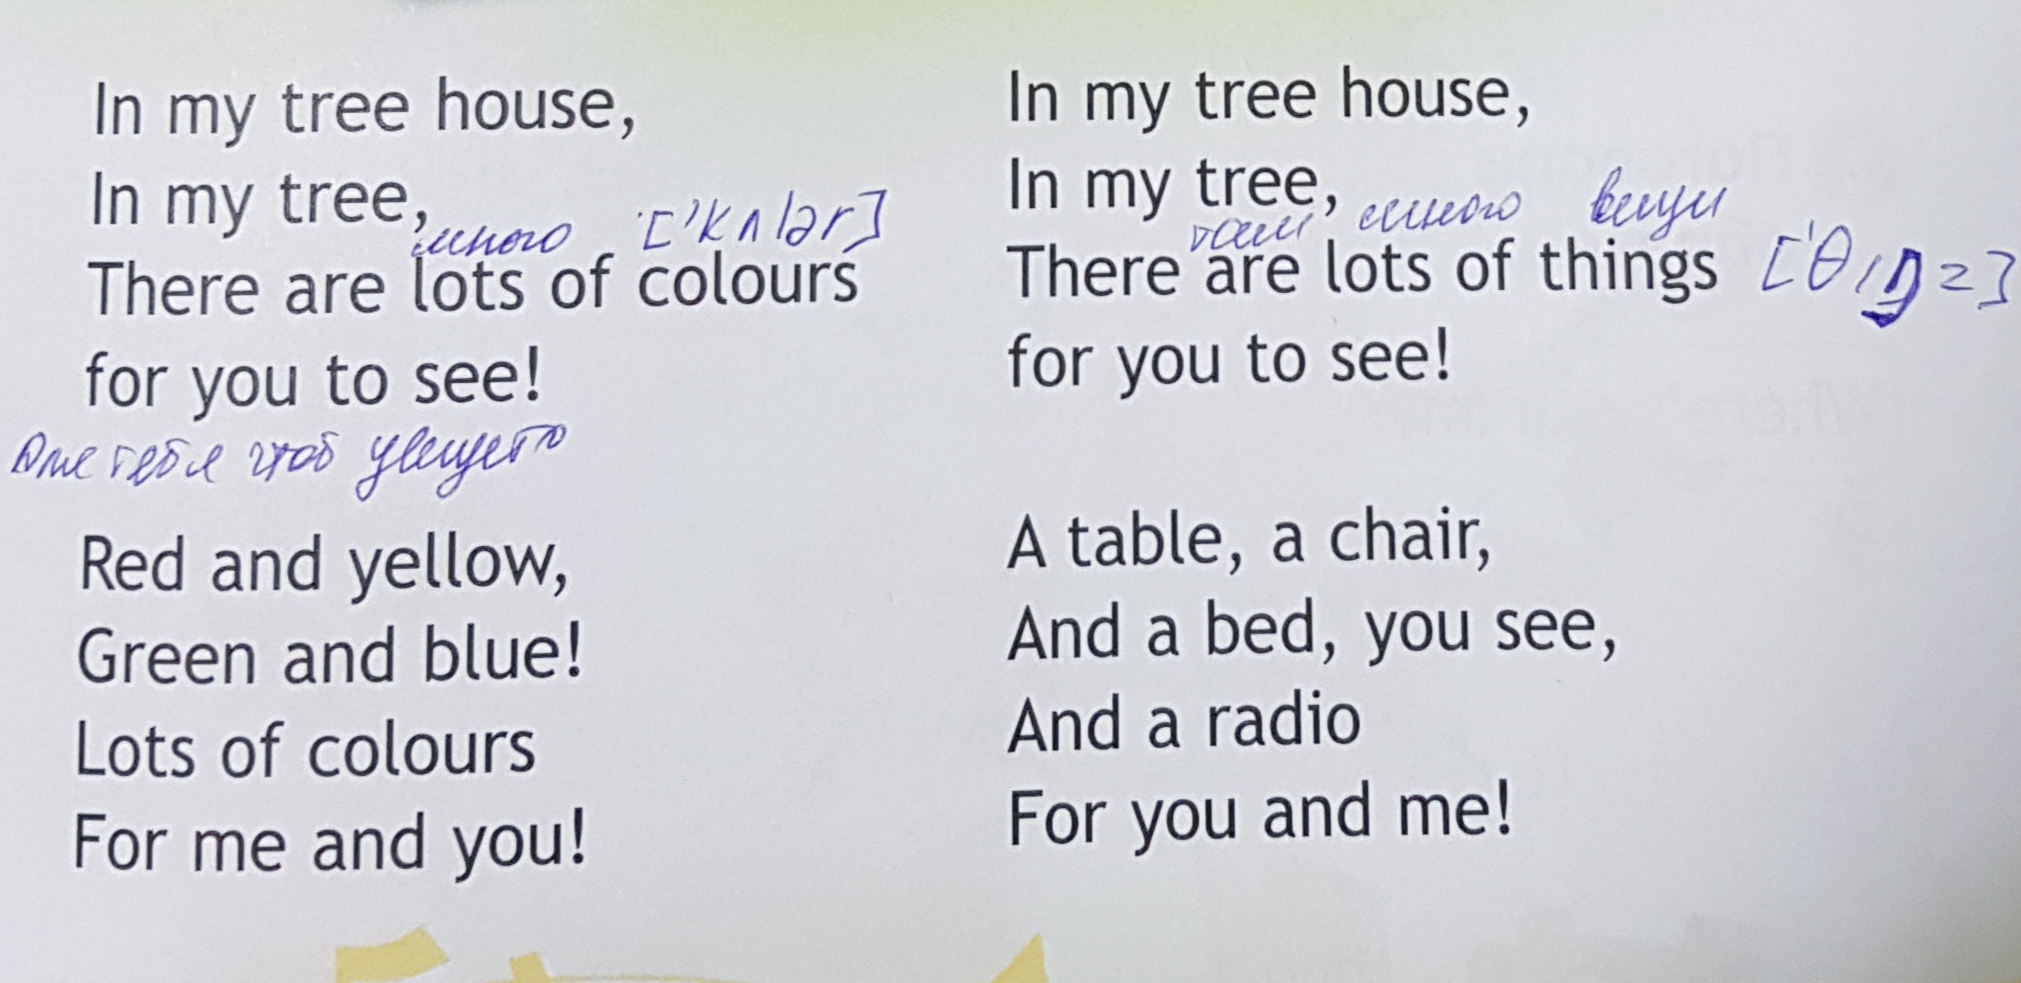 In my tree house,
In my tree,
много ['kʌlər]
There are lots of colours
for you to see!
Для тебя чтоб увидеть
Red and yellow,
Green and blue!
Lots of colours
For me and you!
In my tree house,
In my tree,
там много вещи
There are lots of things ['θɪŋz]
for you to see!
A table, a chair,
And a bed, you see,
And a radio
For you and me!